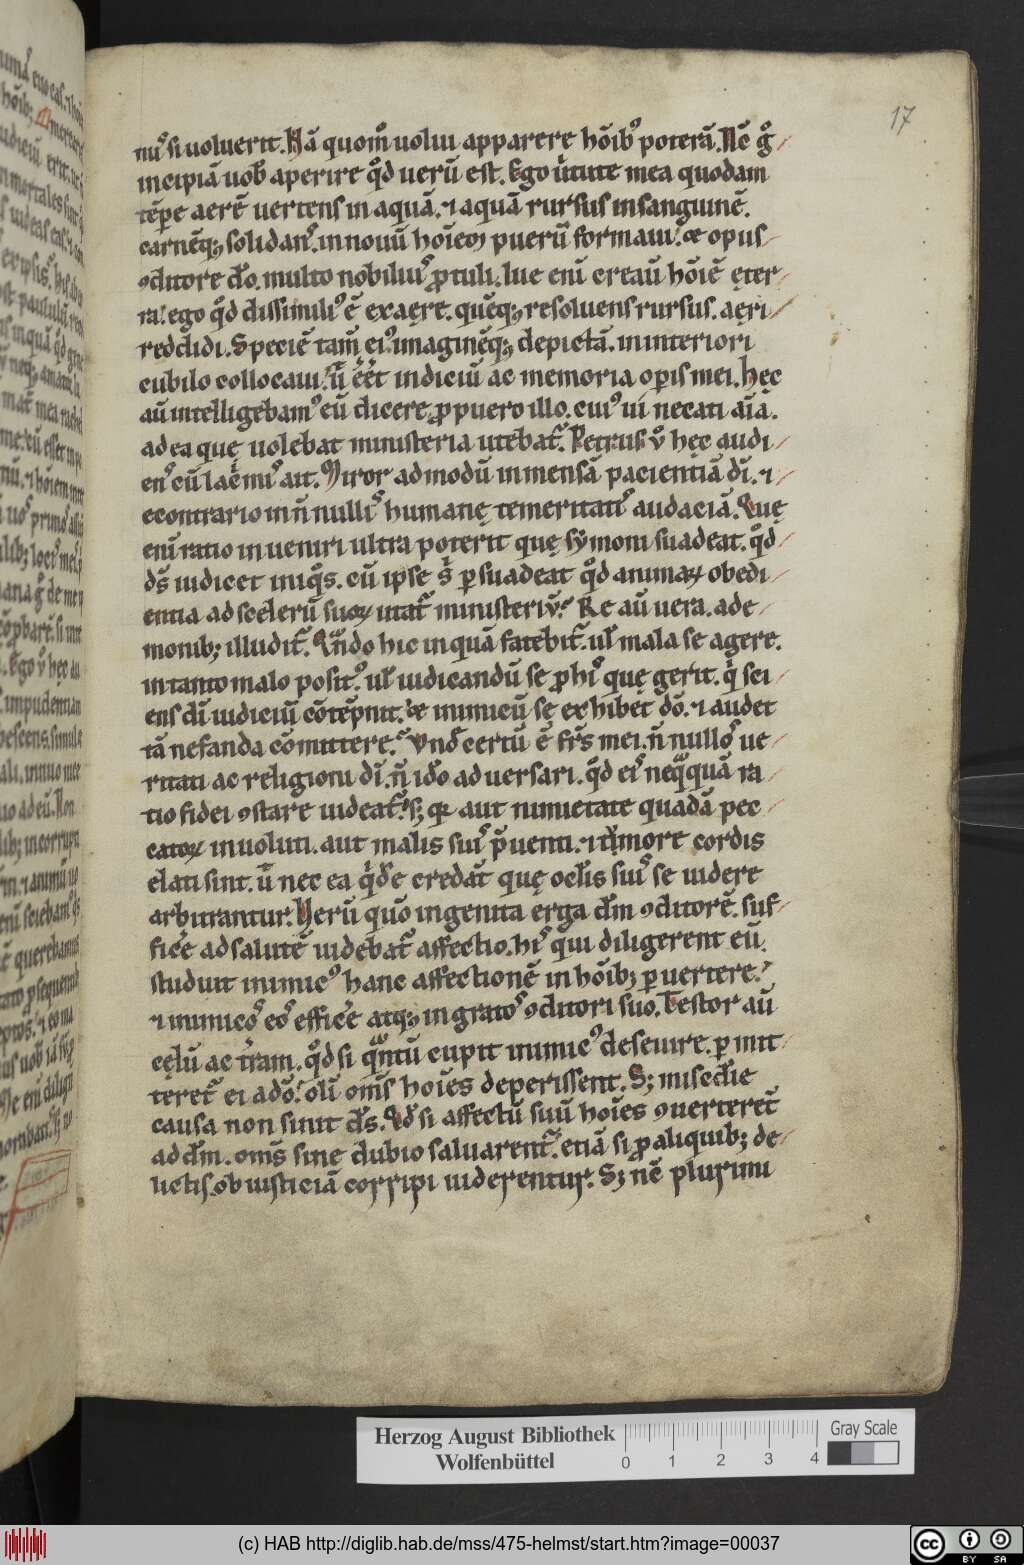 17
nuˢ si uoluerit. Nā quom̄ uolui apparere hōibꝰ poterā. Nē g̊
incipiā uob̄ aperire qd̄ uerū est. Ego ữtute mea quodam
tēp̄e aerē uertens in aquā. ⁊ aquā rursus in sanguinē.
carnēqꝫ solidanꝰ. in nouū hoīem puerū formaui. ac opus
ꝯditore dō. multo nobiliuꝰ ꝓtuli. Iue enī creaū hōiē ęter
ra. ego qd̄ dissimiliꝰ ē exaere. quēqꝫ resoluens rursus. aęri
reddidi. Speciē tam̄ eiꝰ imaginēqꝫ depictā. in interiori
cubilo collocaui. ut̄ eēt indiciū ac memoria op̄is mei. hęc
aū intelligebamꝰ eū dicere ꝓ puero illo. cuiꝰ ui necati aīā.
ad ea quę uolebat ministeria utebat᷑. Petrus v̊ hęc audi
enˢ cū lacͥmiˢ ait. Miror admodū inmensā pacientiā dī. ⁊
econtrario in n̄nulliˢ humanę temeritatiˢ audaciā. Quę
enī ratio inueniri ultra poterit quę sẏmoni suadeat. qd̄
dˢ iudicet iniqͦs. cū ipse sͥ ꝑsuadeat qd̄ animaꝝ obedi
entia ad scelerū suoꝝ utat᷑ ministeriū. Re aū uera. a de
monibꝫ illudit᷑. Qn̄do hic inquā fatebit᷑. ul̄ mala se agere.
in tanto malo positꝰ. ul̄ iudicandū se ꝓ hiˢ quę gerit. qͥ sci
ens dī iudiciū cōtēpnit. ac inimicū se exhibet dō. ⁊ audet
tā nefanda cōmittere. Vnd̄ certū ē frˢ mei. n̄ nulloˢ ue
ritati ac religioni dī. n̄ id̄o aduersari. qd̄ eiˢ neqͣquā ra
tio fidei ꝯstare uideat᷑. sꝫ qꝛ aut nimietate quadā pec
catoꝝ inuoluti. aut malis suiˢ p̄uenti. ⁊ tumore cordis
elati sint. ut̄ nec ea qͥd̄e credāt quę oclīs suiˢ se uidere
arbitrantur. Verū quō ingenita erga dm̄ ꝯditorē. suf
ficͤe ad salutē uidebat᷑ affectio. hiˢ qui diligerent eū.
studuit inimicꝰ hanc affectionē in hōibꝫ ꝑuertere.
⁊ inimicoˢ eoˢ efficͤe atqꝫ ingratoˢ ꝯditori suo. Testor aū
cęlū ac tͤram. qd̄ si qͣntū cupit inimicꝰ deseuire. ꝑmit
teret᷑ ei a dō. olī om̄s hoīes deperissent. Sꝫ misedīe
causa non sinit dˢ. Qd̄ si affectū suū hoīes ꝯuerterēt
ad dm̄. om̄s sine dubio saluarent᷑. etiā si ꝓ aliquibꝫ de
lictis. ob iusticiā corripi uiderentur. Sꝫ nē plurimi
Herzog August Bibliothek
Wolfenbüttel
0 1 2 3 4
Gray Scale
(c) HAB http://diglib.hab.de/mss/475-helmst/start.htm?image=00037
cc BY SA